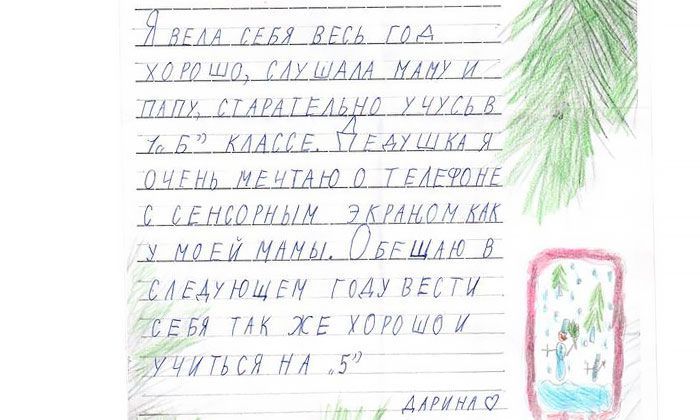 Я ВЕЛА СЕБЯ ВЕСЬ ГОД
ХОРОШО, СЛУШАЛА МАМУ И
ПАПУ, СТАРАТЕЛЬНО УЧУСЬ В
1 „Б” КЛАССЕ. ДЕДУШКА Я
ОЧЕНЬ МЕЧТАЮ О ТЕЛЕФОНЕ
С СЕНСОРНЫМ ЭКРАНОМ КАК
У МОЕЙ МАМЫ. ОБЕЩАЮ В
СЛЕДУЮЩЕМ ГОДУ ВЕСТИ
СЕБЯ ТАК ЖЕ ХОРОШО И
УЧИТЬСЯ НА „5”
ДАРИНА♡